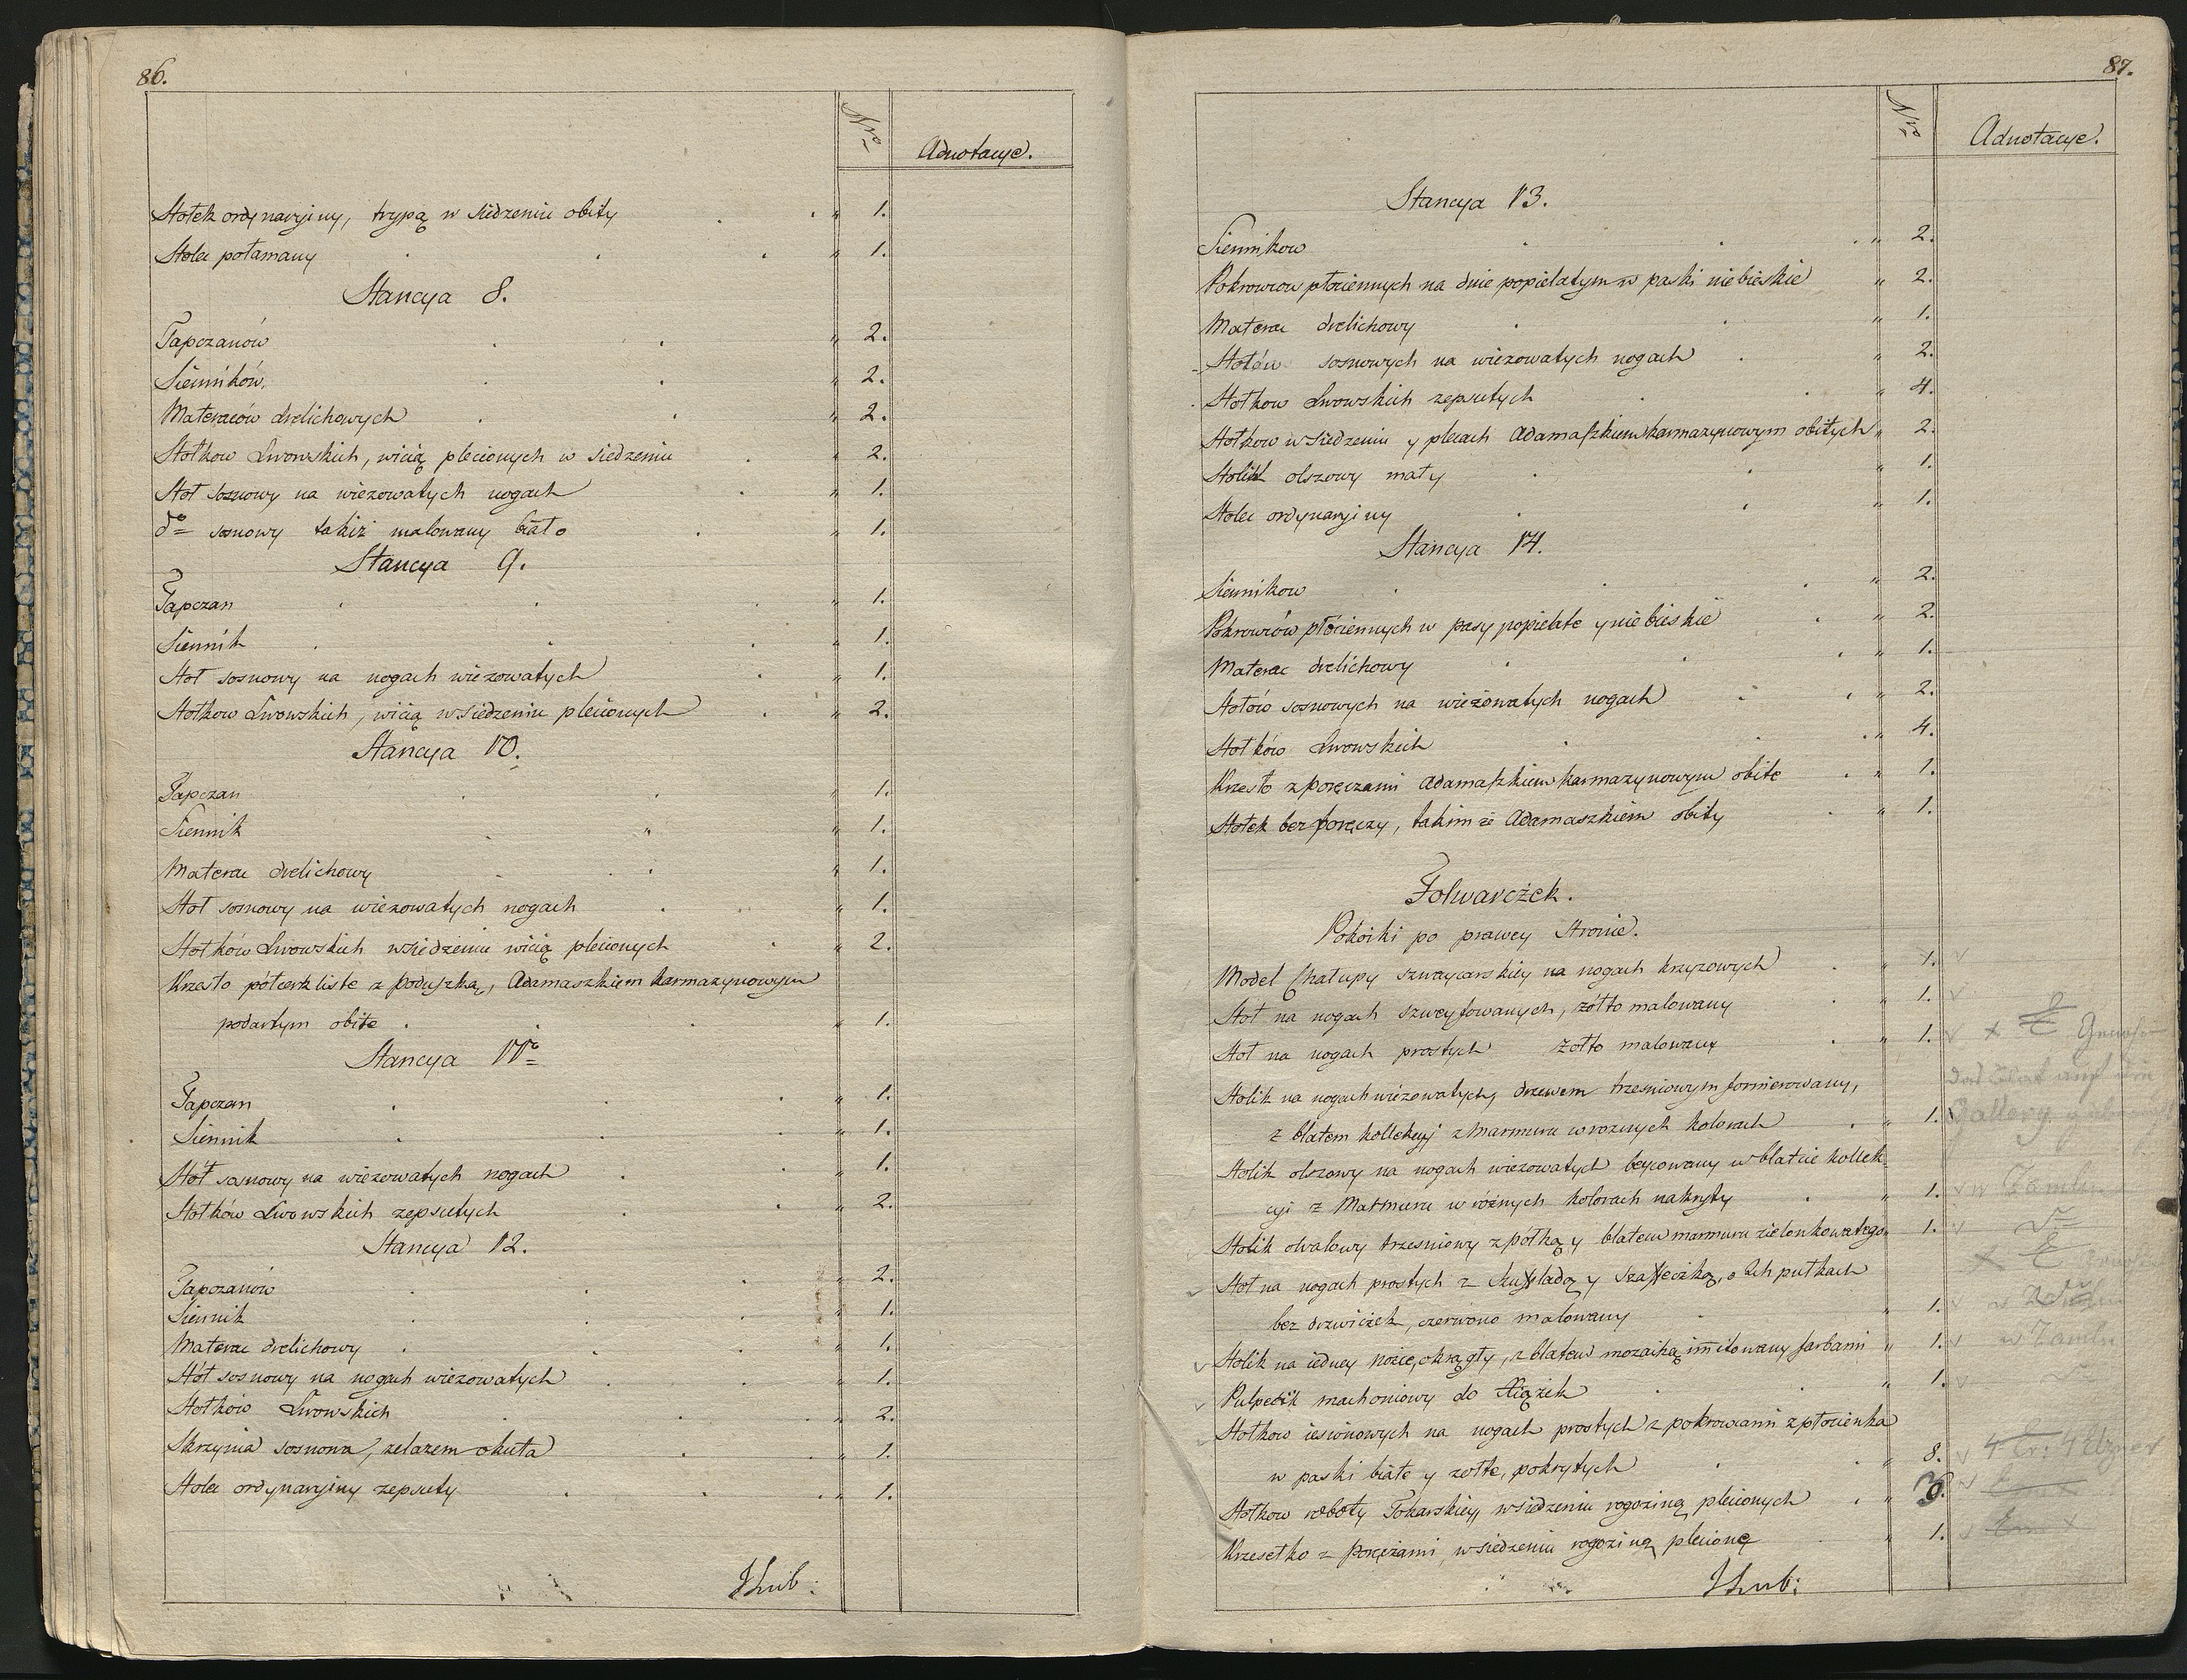 86.
Nro
Adnotacye.
Stołek ordynaryiny, trypą w siedzeniu obity „ 1.
Stolec połamany „ 1.
Stancya 8.
Tapczanów „ 2.
Sienników. „ 2.
Materaców drelichowych „ 2.
Stołkow Lwowskich, wicią plecionych w siedzeniu „ 2.
Stoł sosnowy na wiezowatych nogach „ 1.
do sosnowy takiż malowany biało „ 1.
Stancya 9.
Tapczan „ 1.
Siennik „ 1.
Stoł sosnowy na nogach wiezowatych „ 1.
Stołkow Lwowskich, wicią w siedzeniu plecionych „ 2.
Stancya 10.
Tapczan „ 1.
Siennik „ 1.
Materac drelichowy „ 1.
Stoł sosnowy na wiezowatych nogach „ 1.
Stołków Lwowskich w siedzeniu wicią plecionych „ 2.
Krzesło pótcerkliste z poduszką, Adamaszkiem karmazynowym
podartym obite „ 1.
Stancya 11o
Tapczan „ 1.
Siennik „ 1.
Stół sosnowy na wiezowatych nogach „ 1.
Stołków Lwowskich zepsutych „ 2.
Stancya 12.
Tapczanów „ 2.
Siennik „ 1.
Materac drelichowy „ 1.
Stół sosnowy na nogach wiezowatych „ 1.
Stołków Lwowskich „ 2.
Skrzynia sosnowa, zelazem okuta „ 1.
Stolec ordynaryiny zepsuty „ 1.
87.
Nro
Adnotacye.
Stancya 13.
Siennikow „ 2.
Pokrowcow płociennych na dnie popielatym w paski niebieskie „ 2.
Materac drelichowy „ 1.
Stołów sosnowych na wiezowatych nogach „ 2.
Stołkow Lwowskich zepsutych „ 4.
Stołkow w siedzeniu y plecach Adamaszkiem karmazynowym obitych „ 2.
Stolik olszowy mały „ 1.
Stolec ordynaryiny „ 1.
Stancya 14.
Siennikow „ 2.
Pokrowców płóciennych w pasy popielate y niebieskie „ 2.
Materac drelichowy „ 1.
Stołów sosnowych na wieżowatych nogach „ 2.
Stołków Lwowskich „ 4.
Krzesło z poręczami Adamaszkiem karmazynowym obite „ 1.
Stołek bez poręczy, takim że Adamaszkiem obity „ 1.
Folwarczek.
Pokoiki po prawey stronie.
Model Chałupy szwaycarskiey na nogach krzyzowych „ 1.
Stoł na nogach szweyfowanych, zółto malowany „ 1.
Stoł na nogach prostych zółto malowany „ 1.
Stolik na nogach wiezowatych, drzewem trzesniowym fornierowany,
z blatem kollekcyj z Marmuru w roznych kolorach „ 1.
Stolik olszowy na nogach wiezowatych beycowany w blacie kollek-
cyi z Marmuru w różnych kolorach nakryty „ 1.
Stolik owalowy trzesniowy z pótką y blatem marmuru zielonkowatego „ 1.
Stoł na nogach prostych z Szufladą y szafeczką, o 2ch putkach
bez drzwiczek, czerwono malowany „ 1.
Stolik na iedney nożce, okrągły, z blatem mozaiką imitowany farbami „ 1.
w Zamku
Pulpecik machoniowy do Xiążek „ 1.
Stołkow iesionowych na nogach prostych z pokrowcami z płocienka
w paski białe y zołte, pokrytych „ 8.
Stołkow roboty Tokarskiey, w siedzeniu rogoziną plecionych „ 6.
Krzesełko z poręczami, w siedzeniu rogoziną plecione „ 1.